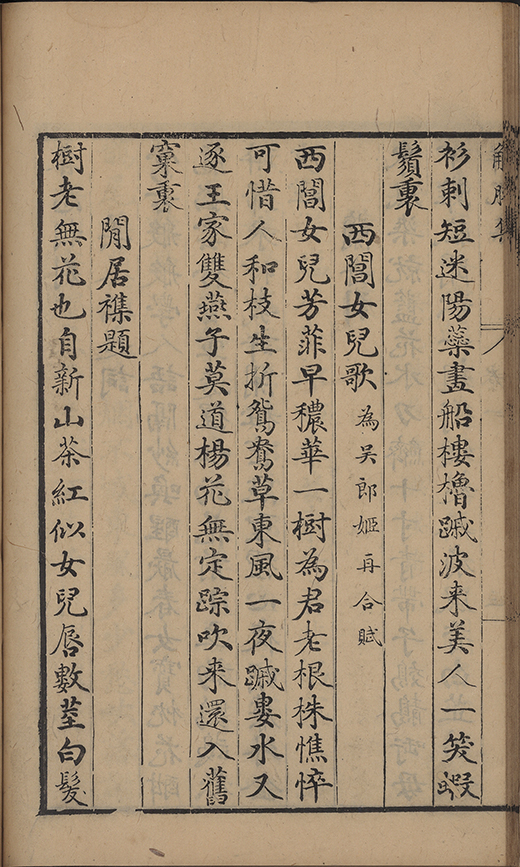 解脫集
衫刺短迷陽藥畫船樓櫓蹴波来美人一笑蝦
鬚裏
西閶女兒歌為吳郎姬再合賦
西閶女兒芳菲早穠華一樹為君老根株憔悴
可惜人和枝生折鴛鴦草東風一夜蹴婁水又
逐王家雙燕子莫道楊花無定踪吹来還入舊
窠裏
閒居襍題
樹老無花也自新山茶紅似女兒唇數莖白髮